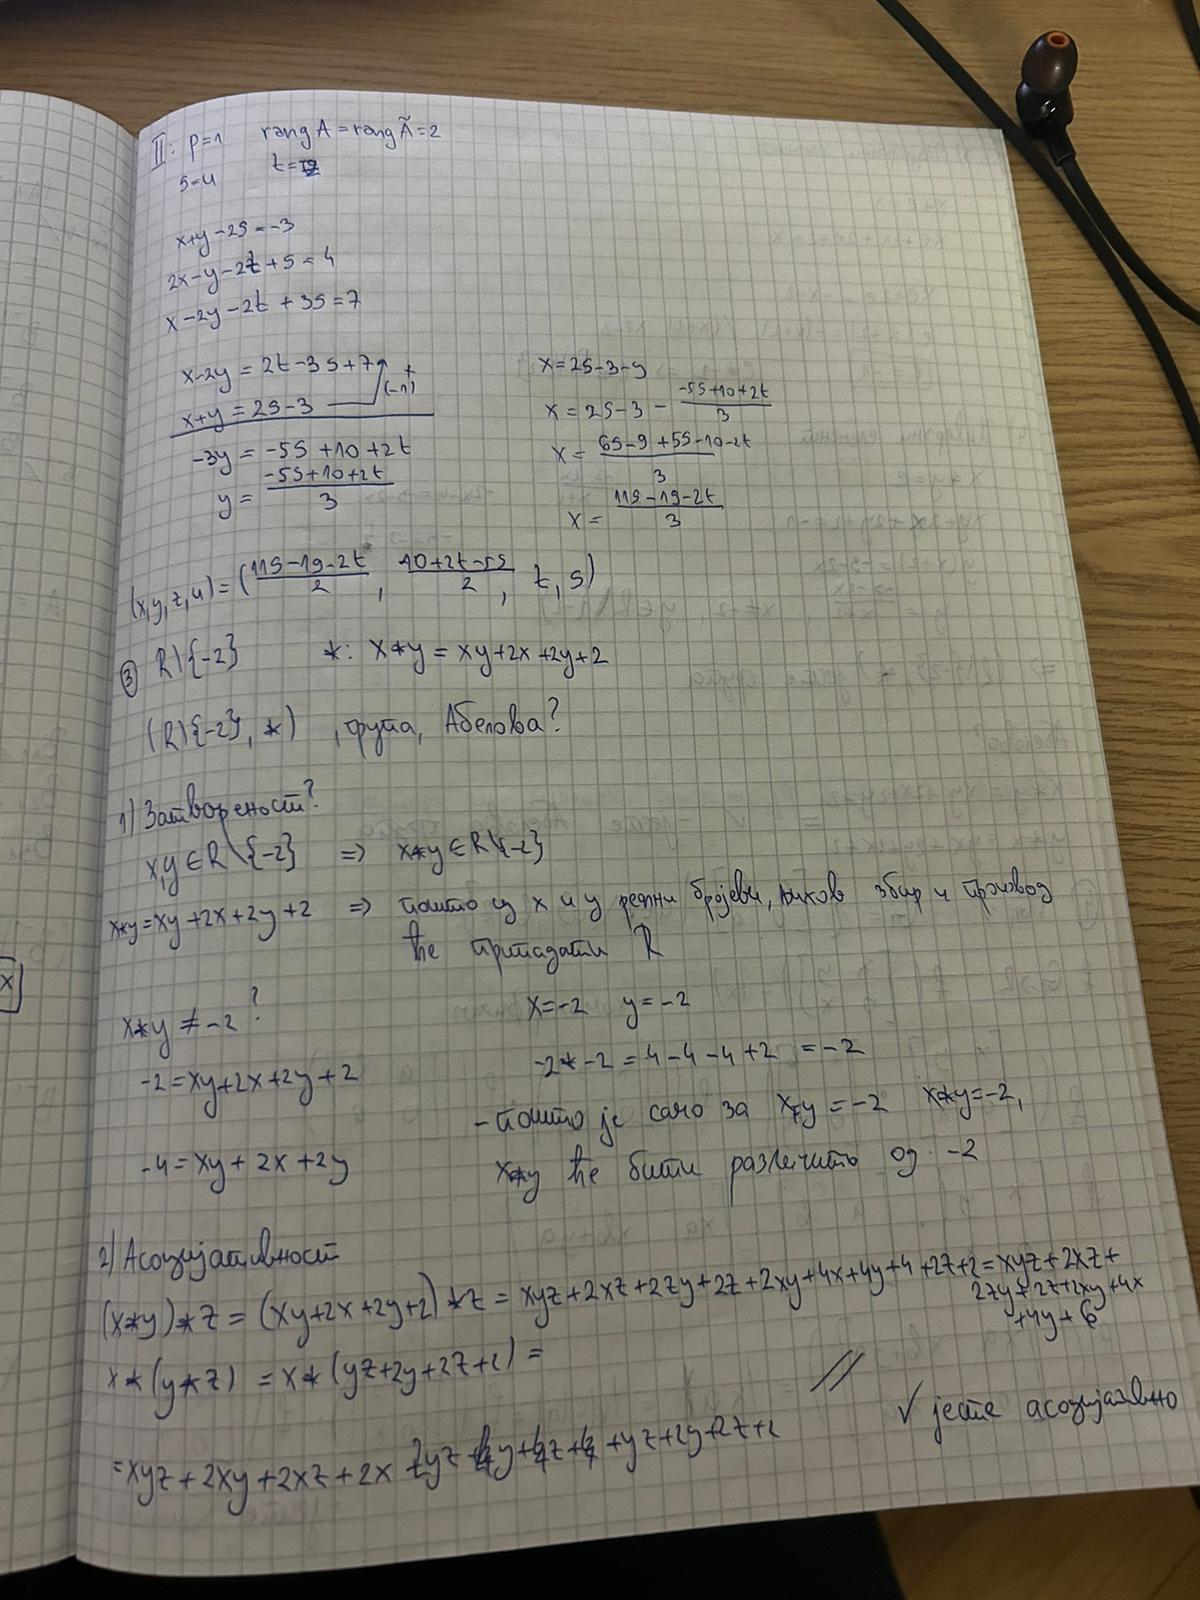 II: p=1 rang A = rang Ã = 2
s=u t=z
x+y-2s=-3
2x-y-2t+s=4
x-2y-2t+3s=7
x-2y = 2t-3s+7 +
x+y = 2s-3 (-1)
-3y = -5s+10+2t
y = (-5s+10+2t)/3
x=2s-3-y
x = 2s-3 - (-5s+10+2t)/3
x = (6s-9+5s-10-2t)/3
x = (11s-19-2t)/3
(x,y,z,u)=((11s-19-2t)/2, (10+2t-5s)/2, t, s)
③ R\{-2} *: x*y = xy+2x+2y+2
(R\{-2}, *) , група, Абелова?
1) Затвореност?
x,y∈R\{-2} => x*y∈R\{-2}
x*y=xy+2x+2y+2 => пошто су x и y реални бројеви, њихов збир и производ
ће припадати R
x*y ≠ -2?
-2=xy+2x+2y+2
-4=xy+2x+2y
x=-2 y=-2
-2*-2=4-4-4+2 =-2
-пошто је само за x,y=-2 x*y=-2,
x*y ће бити различито од -2
2) Асоцијативност
(x*y)*z = (xy+2x+2y+2)*z = xyz+2xz+2zy+2z+2xy+4x+4y+4+2z+2=xyz+2xz+
2zy+2z+2xy+4x
+4y+6
x*(y*z) = x*(yz+2y+2z+2) =
=xyz+2xy+2xz+2x +yz+2y+2z+2
// ✓ јесте асоцијативно
x